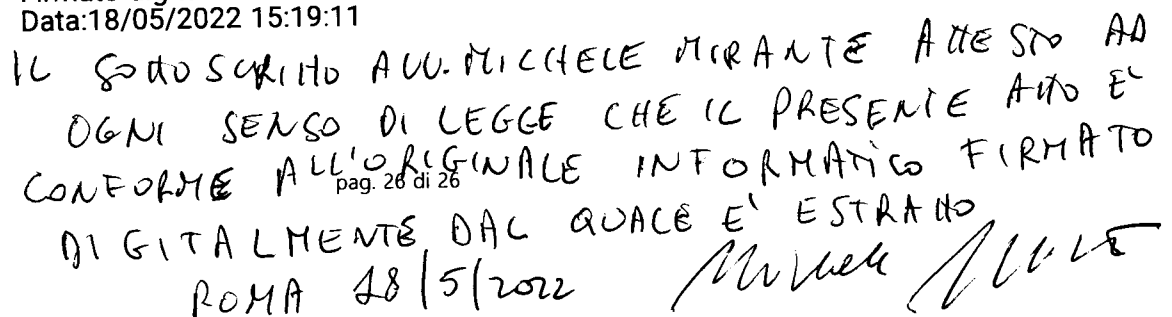 Data:18/05/2022 15:19:11
IL SOTTOSCRITTO AVV. MICHELE MIRANTE ATTESTO AD
OGNI SENSO DI LEGGE CHE IL PRESENTE ATTO E'
CONFORME ALL'ORIGINALE INFORMATICO FIRMATO
pag. 26 di 26
DIGITALMENTE DAL QUALE E' ESTRATTO
ROMA 18/5/2022 Michele